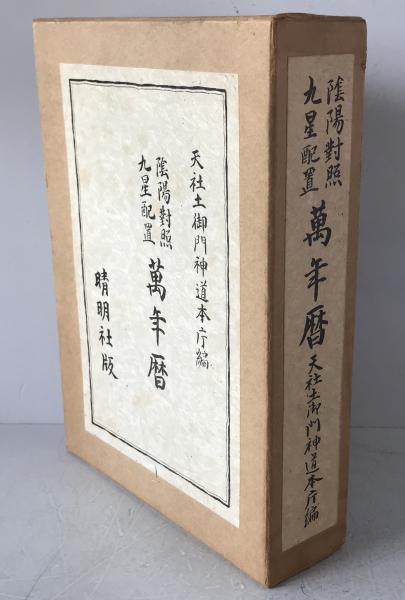 天社土御門神道本庁編
陰陽對照
九星配置
萬年暦
晴明社版
陰陽對照
九星配置
萬年暦
天社土御門神道本庁編